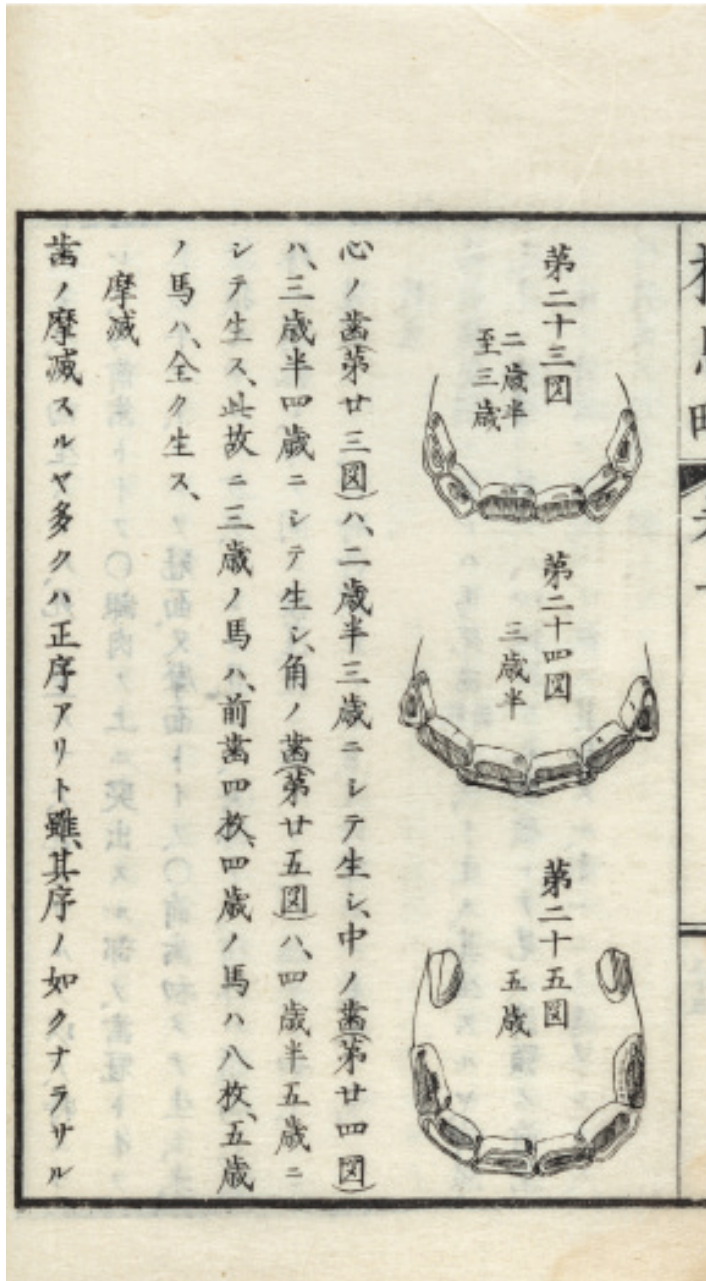 第二十三図
二歳半
至三歳
第二十四図
三歳半
第二十五図
五歳
心ノ歯(第廿三図)ハ、二歳半三歳ニシテ生シ、中ノ歯(第廿四図)
ハ、三歳半四歳ニシテ生シ、角ノ歯(第廿五図)ハ、四歳半五歳ニ
シテ生ス、此故ニ三歳ノ馬ハ、前歯四枚、四歳ノ馬ハ八枚、五歳
ノ馬ハ、全ク生ス、
摩滅
歯ノ摩滅スルヤ多クハ正序アリト雖、其序ノ如クナラサル